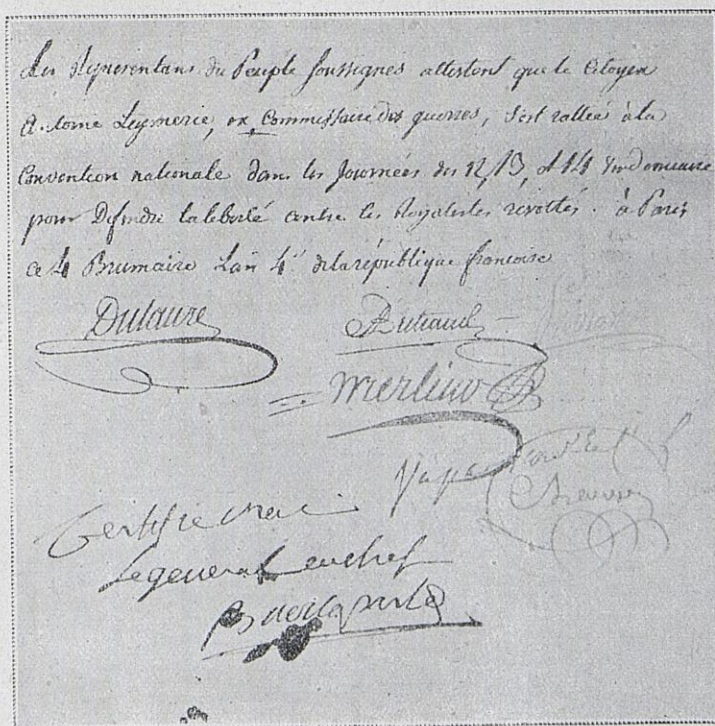 Les Représentans du Peuple soussignés attestent que le Citoyen
Antoine Leymerie, ex Commissaire des guerres, s'est rallié à la
Convention nationale dans les Journées des 12, 13, et 14 Vendemiaire
pour Défendre la liberté contre les Royalistes révoltés. à Paris
ce 4 Brumaire L'an 4e de la république francoise
Dulaure
Artaud
Merlino
Certifié vrai
Le général en chef
Buonaparte